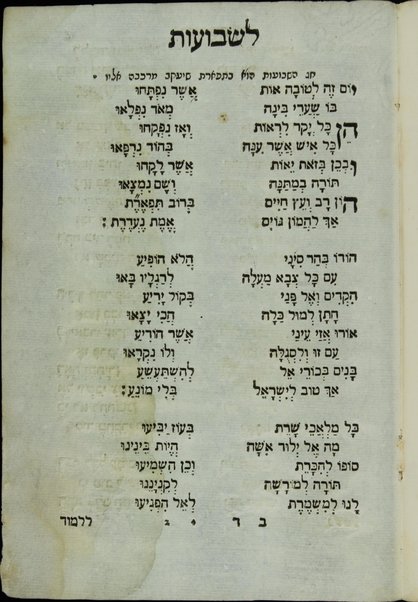 לשבועות
חג השבועות הוא בתפארת שיעקב מרכבה אליו
יוֹם זֶה לְטוֹבָה אוֹת אֲשֶׁר נִפְתָּחוּ
בּוֹ שַׁעֲרֵי בִּינָה מְאֹד נִפְלָאוּ
הֵן כָּל יְקָר לִרְאוֹת וְאָז נִפְקָחוּ
כָּל אִישׁ אֲשֶׁר עֻנָּה בְּהוֹד נִרְפָּאוּ
וּבְכֵן בְּזֹאת יֵאוֹת אֲשֶׁר לָקָחוּ
תּוֹרָה בְמַתָּנָה וְשָׁם נִמְצָאוּ
הוֹן רָב וְעֵץ חַיִּים בְּרוֹב תִּפְאֶרֶת
אַךְ לַהֲמוֹן גּוֹיִם אֱמֶת נֶעְדֶּרֶת :
הוֹרוּ בְּהַר סִינָי הֲלֹא הוֹפִיעַ
עִם כָּל צְבָא מַעְלָה לְרַגְלָיו בָּאוּ
הִקְדִּים וְאֶל פָּנַי בְּקוֹל יָרִיעַ
חָתָן לְמוּל כַּלָּה הֲכִי יָצָאוּ
אוֹרוּ אֲזַי עֵינַי אֲשֶׁר הוֹרִיעַ
עַם זוּ וְלִסְגֻלָּה וְלוֹ נִקְרָאוּ
בָּנִים בְּכוֹרֵי אֵל לְהִשְׁתַּעְשֵׁעַ
אַךְ טוֹב לְיִשְׂרָאֵל בְּלִי מוֹנֵעַ :
כָּל מַלְאֲכֵי שָׁרֵת בְּעוֹז יַבִּיעוּ
מָה אֶל יְלוּד אִשָּׁה הֱיוֹת בֵּינֵינוּ
סוֹפוֹ לְהִכָּרֵת וְכֵן הִשְׁמִיעוּ
תּוֹרָה לְמוֹרָשָׁה לְקִנְיָנֵנוּ
לָנוּ לְמִשְׁמֶרֶת לָאֵל הִפְגִּיעוּ
ב ד ללמוד